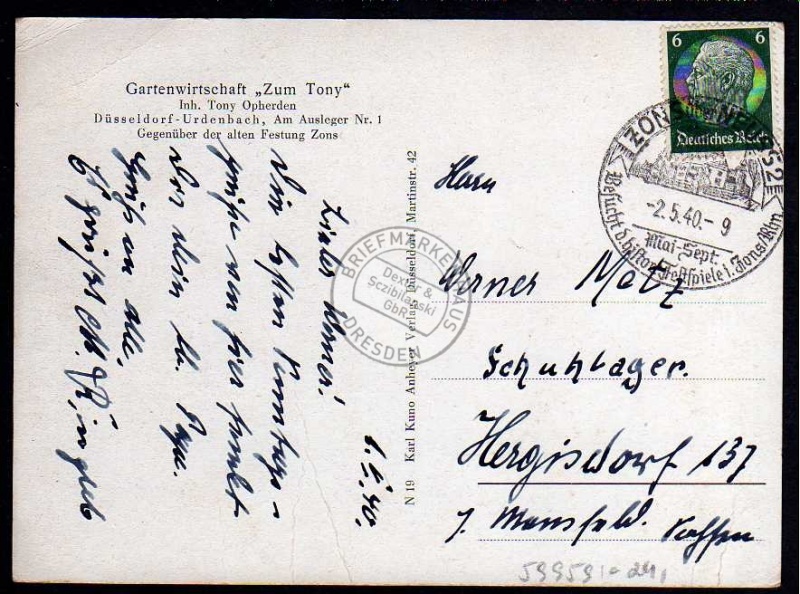 Gartenwirtschaft „Zum Tony“
Inh. Tony Opherden
Düsseldorf-Urdenbach, Am Ausleger Nr. 1
Gegenüber der alten Festung Zons
6 6
Deutsches Reich
ZONS
52
-2.5.40.- 9
Mai-Sept.
Besucht d. histor. Festspiele i. Zons/Rhn
1.5.40.
Lieber Werner!
Die besten
Grüße von hier sendet
Dir dein
Gruß an alle,
N 19 Karl Kuno Anheyer Verlag, Düsseldorf, Martinstr. 42
BRIEFMARKENHAUS
Dexter &
Sczibilanski
GbR
DRESDEN
Herrn
Werner Metz
Schuhlager.
Hergisdorf 137
Mansfeld. Sachsen